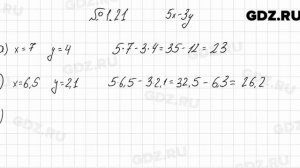 GDZ.RU
№1.21 5x-3y
) x=7 y=4 5·7-3·4=35-12=23
) x=6,5 y=2,1 5·6,5-3·2,1=32,5-6,3=26,2
)
GDZ.RU